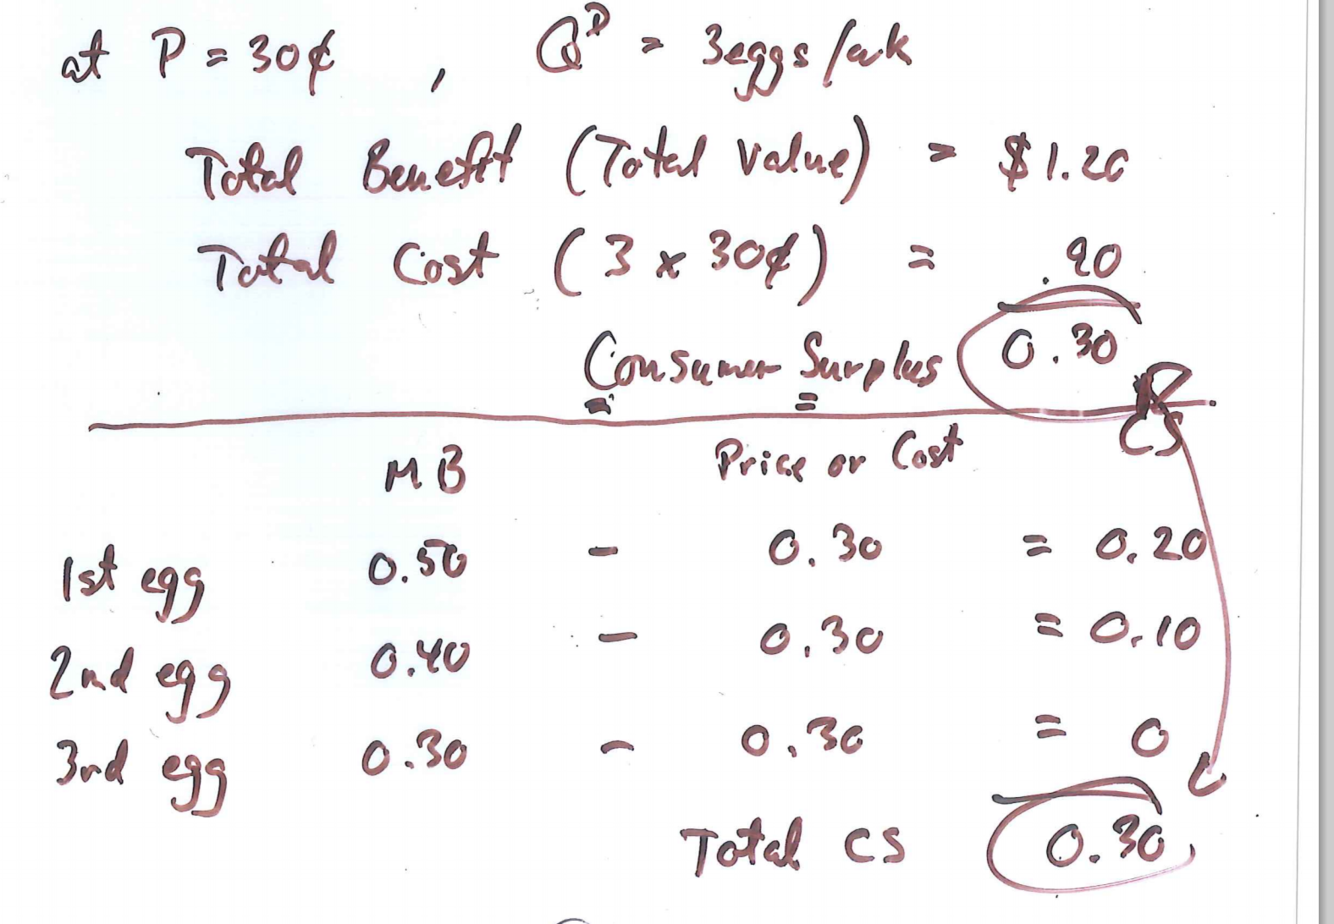 at P = 30¢ , Qᴰ = 3eggs/wk
Total Benefit (Total Value) = $1.20
Total Cost (3 x 30¢) = .90
Consumer Surplus 0.30
MB Price or Cost CS
1st egg 0.50 - 0.30 = 0.20
2nd egg 0.40 - 0.30 = 0.10
3rd egg 0.30 - 0.30 = 0
Total CS 0.30